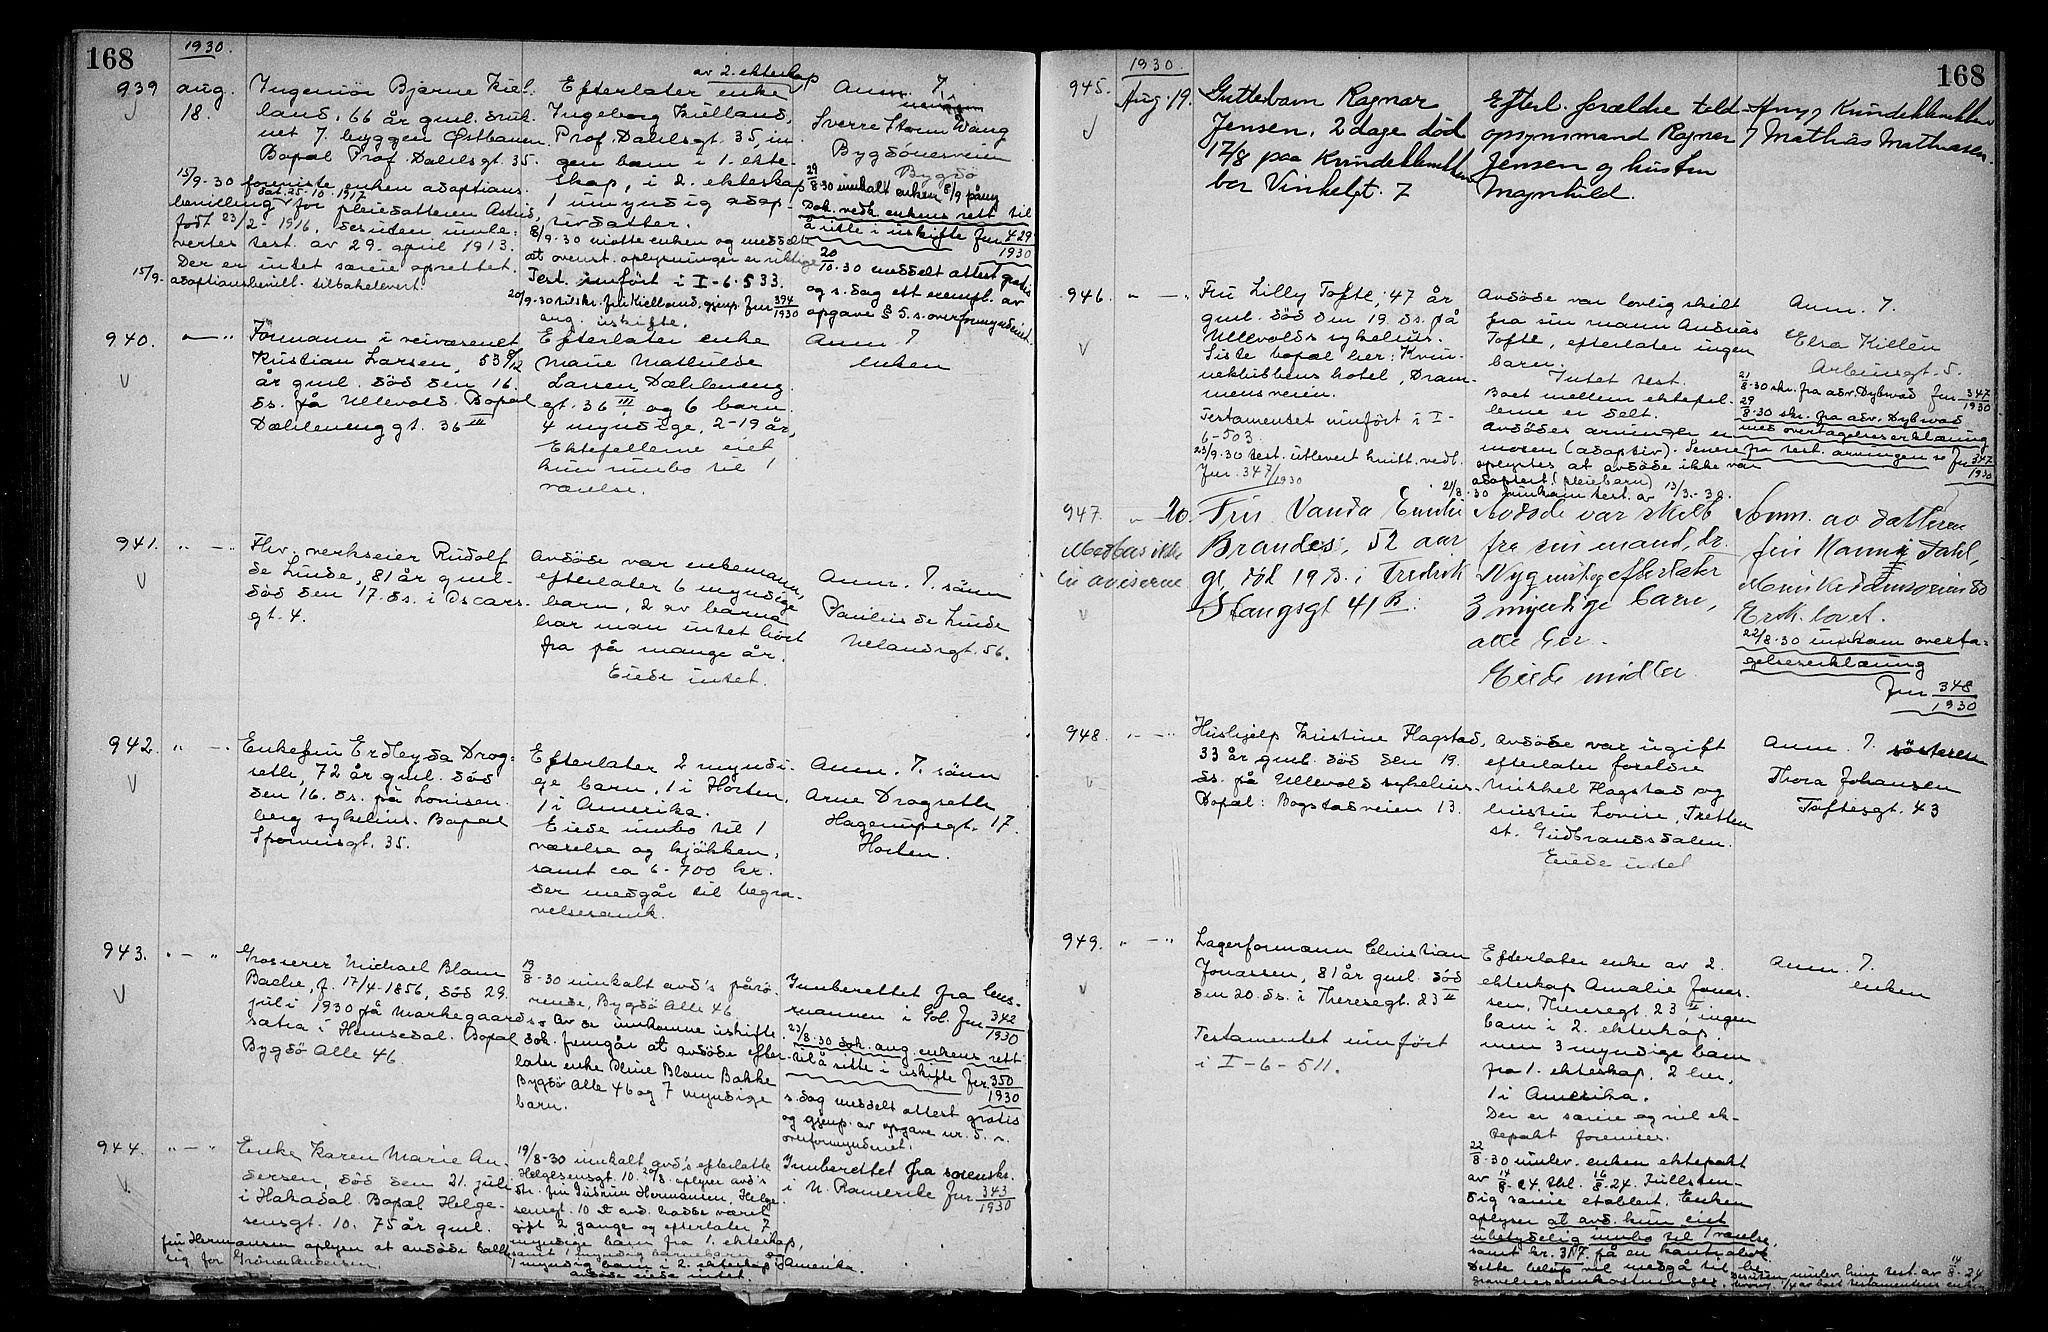 168
1930.
939
aug.
18.
Ingeniör Bjarne Kiel-
land, 66 år gml. druk-
net 7. bryggen Østbanen
Bopæl Prof. Dahlsgt. 35.
15/9-30 foreviste enken adoptions-
dat. 25-10-1917
bevilling for pleiedatteren Astrid,
født 23/2-1916, desuten innle-
vertes test. av 29. april 1913.
Der er intet særeie oprettet.
15/9. adoptionsbevill. tilbakelevert.
av 2. ekteskap
Efterlater enke
Ingeborg Kielland,
Prof. Dahlsgt. 35, in-
gen barn i 1. ekte-
skap, i 2. ekteskap
1 umyndig adop-
tivdatter.
8/9-30 møtte enken og meddelte
at ovenst. oplysninger er riktige
Test. innført i I-6-533.
20/9-30 tilskr. fru Kielland, gjenp. Jnr 394/1930
ang. uskifte.
Anm. 7.
Sverre Storm Wang
Bygdönesveien
Bygdö
29/8-30 innkalt enken 8/9 påny
Dok. vedk. enkens rett til
å sitte i uskifte Jnr 429/1930
20/10-30 meddelt attest gratis
og s. dag ett exempl. av
opgave § 5. s. overformynderiet
940.
Formann i veivæsenet
Kristian Larsen, 53 8/12
år gml. död den 16.
ds. på Ullevold. Bopæl
Dælenenggt. 36 III
Efterlater enke
Marie Mathilde
Larsen, Dæleneng
gt. 36 III, og 6 barn.
4 myndige, 2-19 år,
Ektefellerne eiet
kun innbo til 1
værelse.
Anm. 7
enken
941.
Fhv. verkseier Rudolf
de Linde, 81 år gml.
död den 17. ds. i Oscars-
gt. 4.
Avdöde var enkemann,
efterlater 6 myndige
barn, 2 av barna
har man intet hört
fra på mange år.
Eiede intet.
Anm. 7. sönn
Paulus de Linde
Uelandsgt. 56.
942.
Enkefru Erdleyda Drog-
seth, 72 år gml. död
den 16. ds. på Lovisen-
berg sykehus. Bopæl
Sporveisgt. 35.
Efterlater 2 myndi-
ge barn, 1 i Horten,
1 i Amerika.
Eiede innbo til 1
værelse og kjökken,
samt ca 6-700 kr.
der medgår til begra-
velsesomk.
Anm. 7. sönn
Arne Drogseth
Hagerupsgt. 17.
Horten.
943.
Grosserer Michael Blom
Bache, f. 17/4-1856, död 29.
juli 1930 på Markegaards-
sætra i Hemsedal. Bopæl
Bygdö Alle 46.
19/8-30 innkalt avd's pårö-
rende, Bygdö Alle 46
Av de innkomne uskifte-
dok. fremgår at avdöde efter-
later enke Oline Blom Bakke
Bygdö Alle 46 og 7 myndige
barn.
Innberettet fra lens-
mannen i Gol. Jnr 342/1930
23/8-30 dok. ang. enkens rett
til å sitte i uskifte Jnr 350/1930
s. dag meddelt attest gratis
og gjenp. av opgave nr. 5. s.
overformynderiet.
944.
Enke Karen Marie An-
dersen, död den 21. juli
i Hakadal. Bopæl Helge-
sensgt. 10. 75 år gml.
fru Hermansen oplyser at avdöde kalte
sig for Gröner Andersen.
19/8-30 innkalt avd's efterlatte
Helgesensgt. 10. 20/8. oplyser avd's
dtr. fru Gudrun Hermansen, Helge-
sensgt. 10 at avd. hadde været
gift 2 gange og efterlater 7
myndige barn fra 1. ekteskap,
samt 1 myndig barnebarn og
1 myndig barn i 2. ekteskap i Amerika.
avdöde eiede intet.
Innberettet fra sorenskr.
i N. Romerike Jnr 343/1930
168
1930.
945.
Aug. 19.
Guttebarn Ragnar
Jensen, 2 dage död
17/8 paa Kvindeklinikken
bor Vinkelgt. 7
Efterl. forældre told-
opsynsmand Ragnar
Jensen og hustru
Magnhild.
Anm. 7 Kvindeklinikken
7 Mathias Mathiasen.
946.
Fru Lilly Tofte, 47 år
gml. död den 19. ds. på
Ullevolds sykehus.
Siste bopæl her: Kvin-
neklubbens hotel, Dram-
mensveien.
Testamentet innfört i I-
6-503
23/9-30 test. utlevert hvitt. vedl.
Jnr. 347/1930
Avdöde var lovlig skilt
fra sin mann Andreas
Tofte, efterlater ingen
barn.
Intet test.
Boet mellem ektefol-
lerne er delt.
Avdödes arvinger er
moren (adoptiv). Senere
oplystes at avdöde ikke var
adoptert (pleiebarn)
21/8-30 innkom test. av 13/3-30.
Anm. 7.
Elsa Killén
Arbinsgt. 5.
21/8-30 skr. fra adv. Dybwad Jnr 347/1930
29/8-30 skr. fra adv. Dybwad
med overtagelseserklæring
fra test. arvingen se Jnr 347/1930
947.
20.
Medtas ikke
in aviserne
Fru Vanda Emilie
Brandes, 52 aar
gl. död 19 ds. i Fredrik
Stangsgt 41 B.
Avdöde var skilt
fra sin mand, dr.
Nyquist og efterlater
3 myndige barn,
alle her.
Eiede midler.
Anm. av datteren
fru Nanni Dahl,
Munkedamsveien 80
Erkl. lovet.
22/8-30 innkom overta-
gelseserklæring
Jnr 348/1930
948.
Hushjelp Kristine Flagstad,
33 år gml. död den 19.
ds. på Ullevold sykehus.
Bopæl: Bogstadveien 13.
Avdöde var ugift
efterlater foreldre
Mikkel Flagstad og
hustru Lovise, Tretten
st. Gudbrandsdalen.
Eiede intet
Anm. 7. söstersen
Thora Johansen
Toftesgt. 43
949.
Lagerformann Christian
Jonassen, 81 år gml. död
den 20. ds. i Theresegt. 23 II
Testamentet innfört
i I-6-511.
Efterlater enke av 2.
ekteskap Amalie Jonas-
sen, Theresegt. 23 II, ingen
barn i 2. ekteskap,
men 3 myndige barn
fra 1. ekteskap, 2 her,
1 i Amerika.
Der er særeie og vil ek-
tepakt forevises.
22/8-30 innlev. enken ektepakt
av 14/8-24. tbl. 16/8-24. Fullsten-
dig særeie etablert. Enken
oplyser at avd. kun eiet
ubetydelig innbo til 1 værelse,
samt kr. 317 på en kontrabok
Dette belöp vil medgå til be-
gravelsesomkostninger. Desuten innlev. hun test. av 14/8-24
Anm. 7.
enken